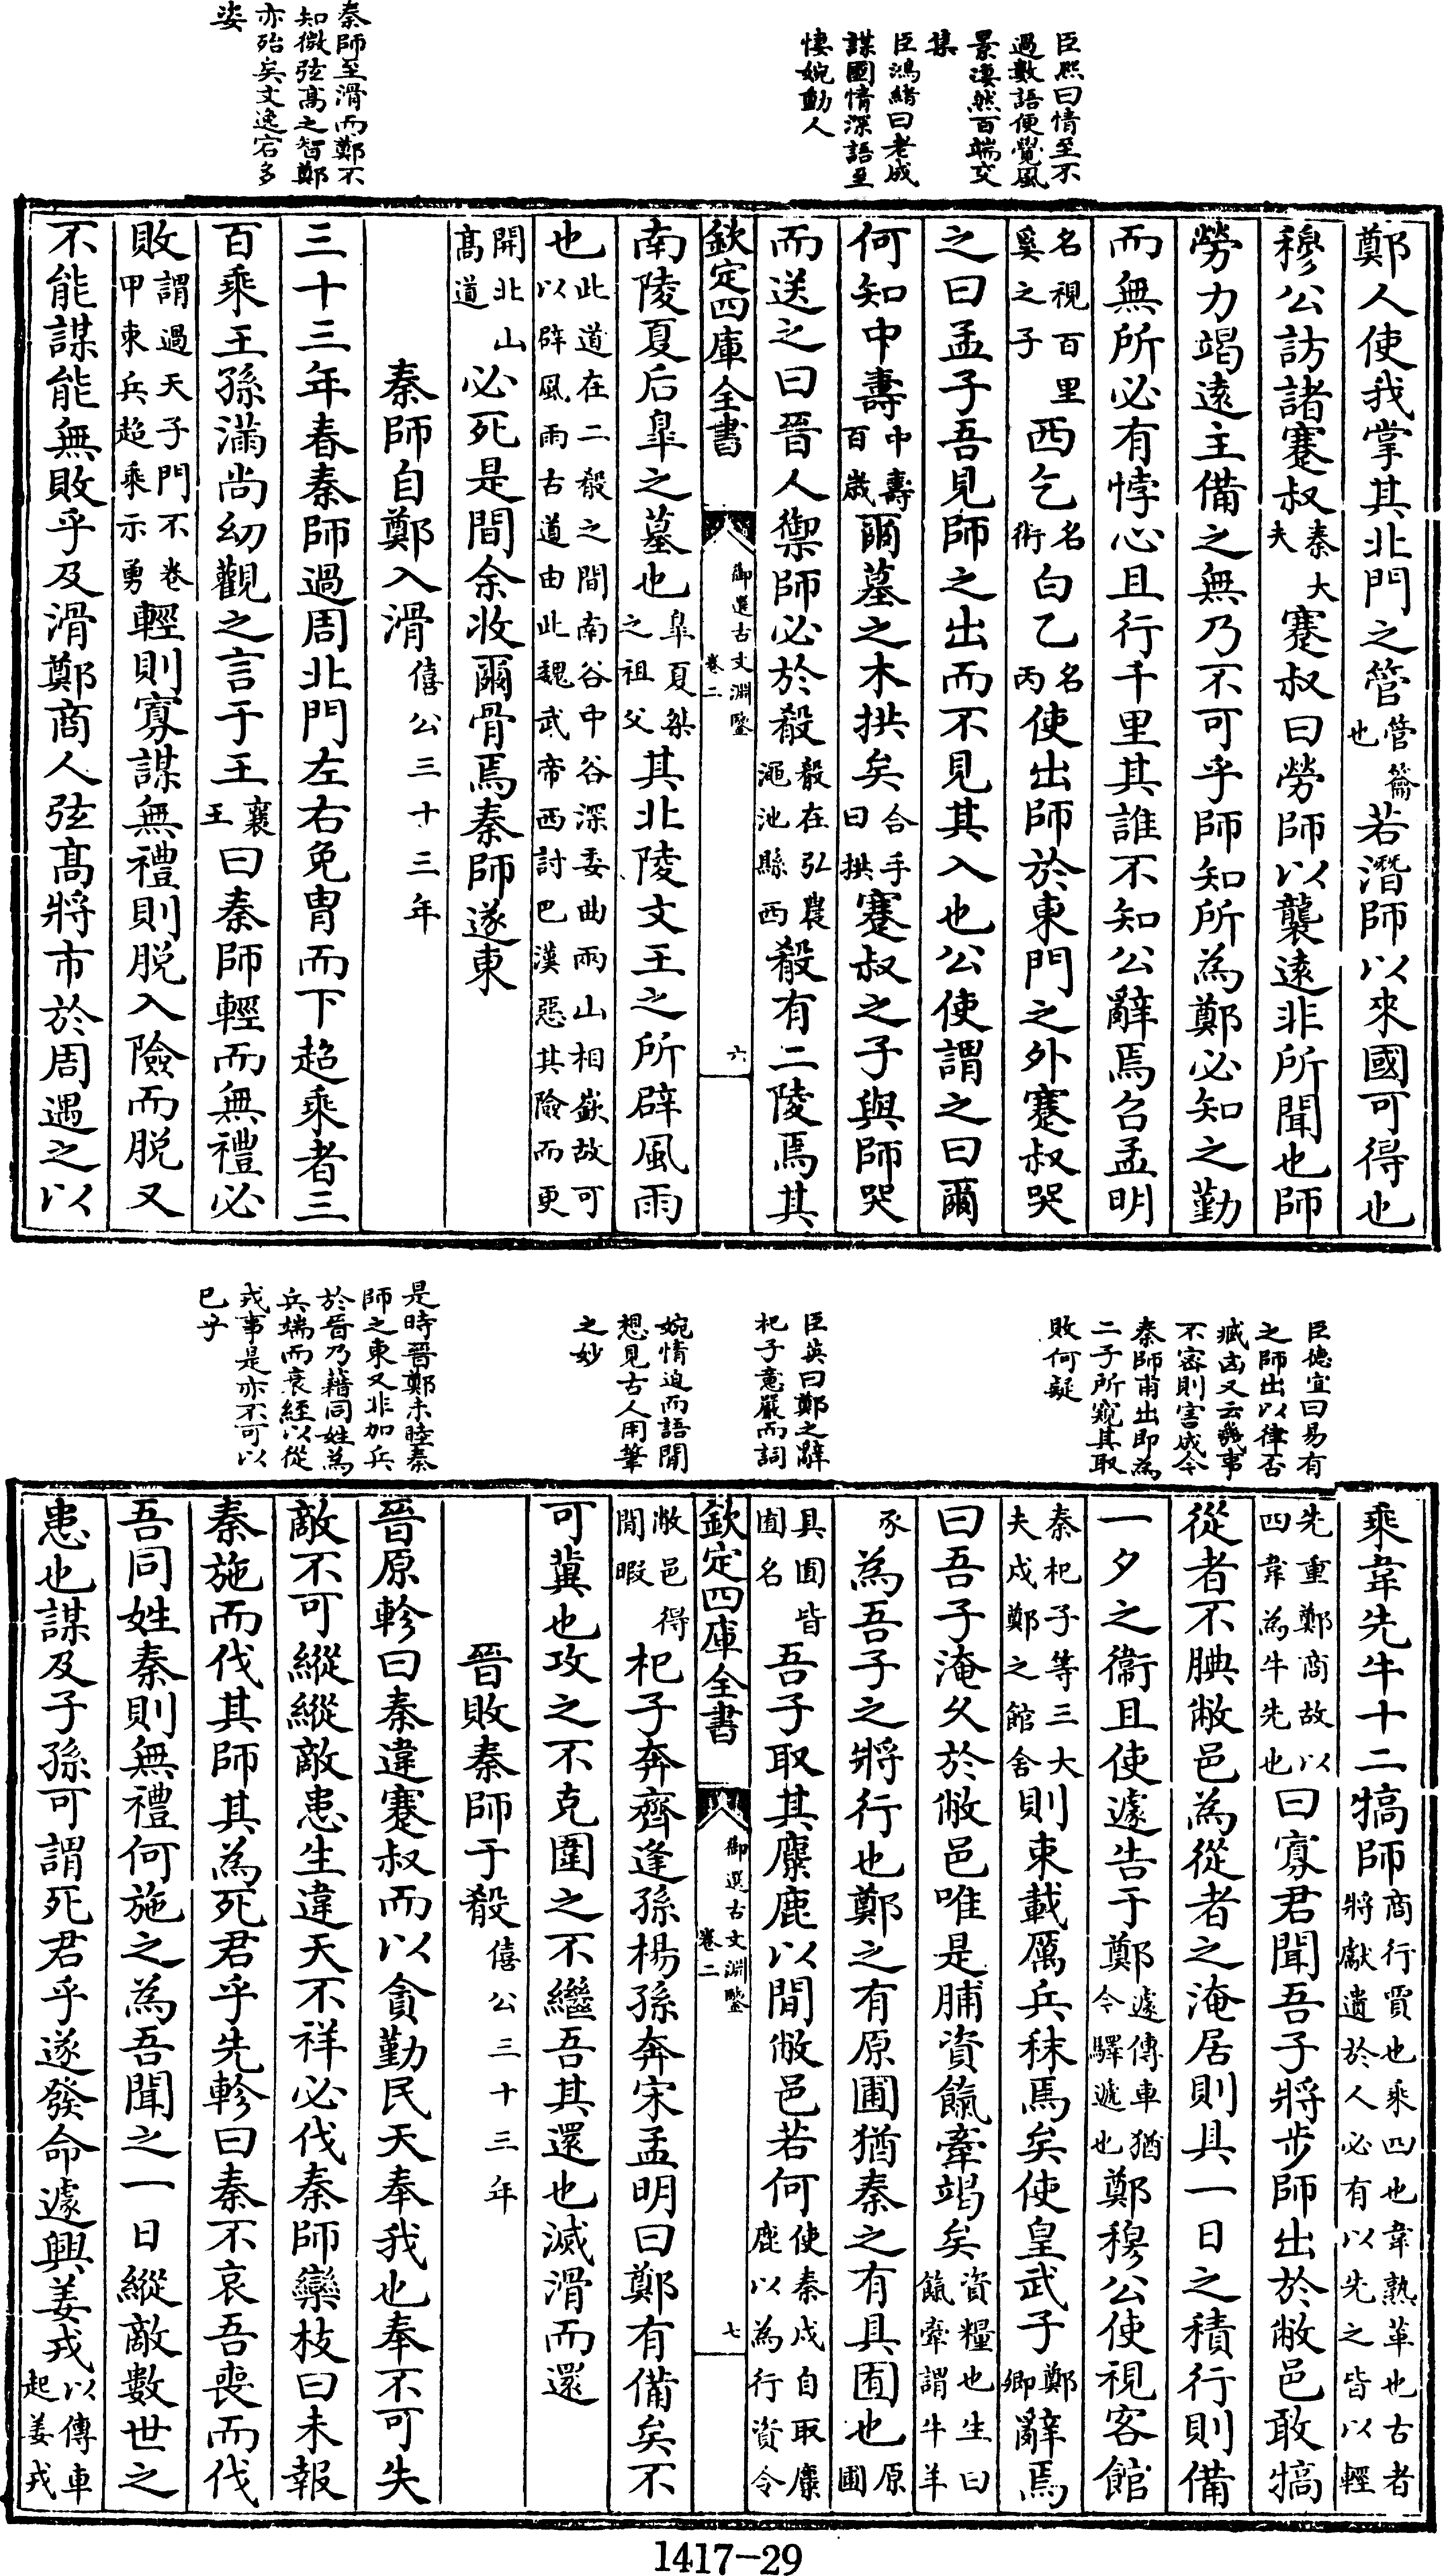 臣熙曰情至不
過數語便覺風
景淒然百端交
集
臣鴻緒曰老成
謀國情深語至
悽婉動人
秦師至滑而鄭不
知微弦髙之智鄭
亦殆矣文逸宕多
姿
鄭人使我掌其北門之管管籥也若潛師以來國可得也
穆公訪諸蹇叔秦大夫蹇叔曰勞師以襲逺非所聞也師
勞力竭逺主備之無乃不可乎師知所為鄭必知之勤
而無所必有悖心且行千里其誰不知公辭焉召孟明
名視百里奚之子西乞名術白乙名丙使出師於東門之外蹇叔哭
之曰孟子吾見師之出而不見其入也公使謂之曰爾
何知中壽中壽百歳爾墓之木拱矣合手曰拱蹇叔之子與師哭
而送之曰晉人禦師必於殽殽在弘農澠池縣西殽有二陵焉其
欽定四庫全書 御選古文淵鑒 卷二 六
南陵夏后臯之墓也臯夏桀之祖父其北陵文王之所辟風雨
也此道在二殽之間南谷中谷深委曲兩山相嶔故可以辟風雨古道由此魏武帝西討巴漢惡其險而更
開北山髙道必死是間余收爾骨焉秦師遂東
秦師自鄭入滑僖公三十三年
三十三年春秦師過周北門左右免胄而下超乘者三
百乘王孫滿尚幼觀之言于王襄王曰秦師輕而無禮必
敗謂過天子門不卷甲束兵超乘示勇輕則寡謀無禮則脱入險而脱又
不能謀能無敗乎及滑鄭商人弦髙將市於周遇之以
臣德宜曰易有
之師出以律否
臧凶又云幾事
不宻則害成今
秦師甫出即為
二子所窺其取
敗何疑
臣英曰鄭之辭
杞子意嚴而詞
婉情迫而語閒
想見古人用筆
之妙
是時晉鄭未睦秦
師之東又非加兵
於晉乃藉同姓為
兵端而衰絰以從
戎事是亦不可以
已乎
乘韋先牛十二犒師商行賈也乘四也韋熟革也古者將獻遺於人必有以先之皆以輕
先重鄭商故以四韋為牛先也曰寡君聞吾子將步師出於敝邑敢犒
從者不腆敝邑為從者之淹居則具一日之積行則備
一夕之衞且使遽告于鄭遽傳車猶今驛遞也鄭穆公使視客館
秦杞子等三大夫戍鄭之館舍則束載厲兵秣馬矣使皇武子鄭卿辭焉
曰吾子淹乆於敝邑唯是脯資餼牽竭矣資糧也生曰餼牽謂牛羊
豕為吾子之將行也鄭之有原圃猶秦之有具囿也原圃
具囿皆囿名吾子取其麋鹿以閒敝邑若何使秦戍自取麋鹿以為行資令
欽定四庫全書 御選古文淵鑒 卷二 七
敝邑得閒暇杞子奔齊逢孫楊孫奔宋孟明曰鄭有備矣不
可冀也攻之不克圍之不繼吾其還也滅滑而還
晉敗秦師于殽僖公三十三年
晉原軫曰秦違蹇叔而以貪勤民天奉我也奉不可失
敵不可縱縱敵患生違天不祥必伐秦師欒枝曰未報
秦施而伐其師其為死君乎先軫曰秦不哀吾喪而伐
吾同姓秦則無禮何施之為吾聞之一日縱敵數世之
患也謀及子孫可謂死君乎遂發命遽興姜戎以傳車起姜戎
1417—29